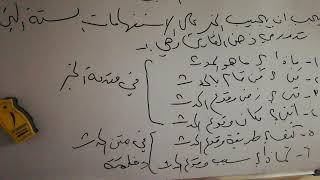 يجب ان يجيب الخبر على الاستفهامات الستة التي
تدور في ذهن القارئ وهي :-
١- ماذا ؟ ماهو الحدث
٢- من ؟ من قام بالحدث
٣- متى ؟ زمن وقوع الحدث
في مقدمة الخبر
٤- أين ؟ مكان وقوع الحدث
٥- كيف ؟ طريقة وقوع الحدث
في متن الحدث
٦- لماذا ؟ سبب وقوع الحدث